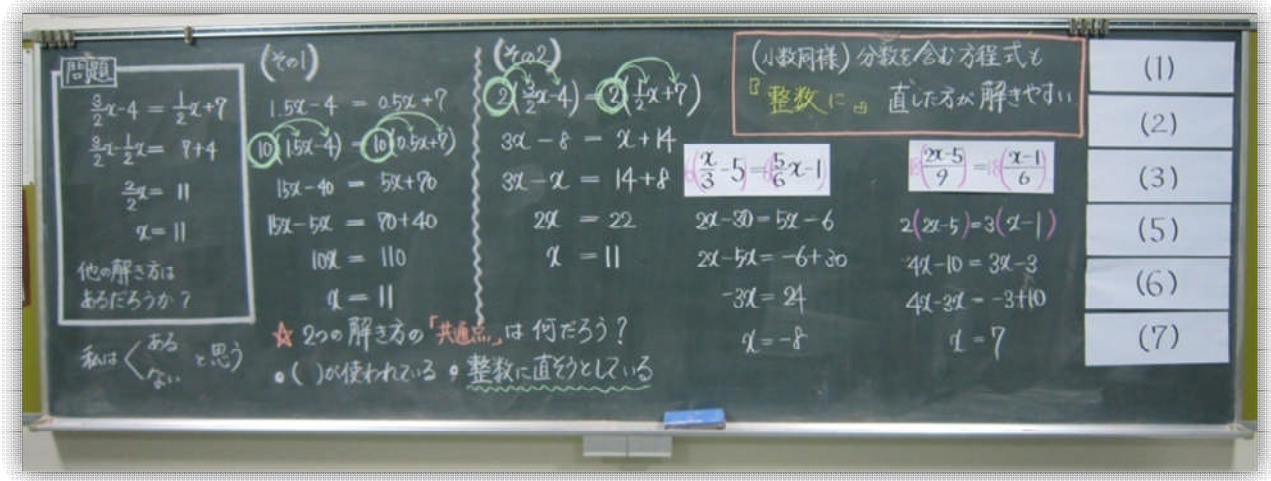 問題
3/2x-4 = 1/2x+7
3/2x-1/2x = 7+4
2/2x = 11
x = 11
他の解き方は
あるだろうか?
私は〈ある ない と思う
(その1)
1.5x-4 = 0.5x+7
10(1.5x-4) = 10(0.5x+7)
15x-40 = 5x+70
15x-5x = 70+40
10x = 110
x = 11
(その2)
2(3/2x-4) = 2(1/2x+7)
3x-8 = x+14
3x-x = 14+8
2x = 22
x = 11
☆2つの解き方の「共通点」は何だろう?
•( )が使われている •整数に直そうとしている
(小数同様)分数を含む方程式も
『整数に』直した方が解きやすい
6(x/3-5)=6(5/6x-1)
2x-30=5x-6
2x-5x=-6+30
-3x=24
x=-8
18(2x-5/9)=18(x-1/6)
2(2x-5)=3(x-1)
4x-10=3x-3
4x-3x=-3+10
x=7
(1)
(2)
(3)
(5)
(6)
(7)